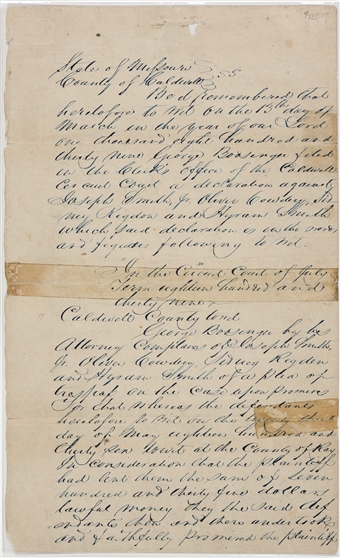 State of Missouri
County of Caldwell SS
Be it remembered that
heretofore to wit on the 13th day of
March in the year of our Lord
one thousand eight hundred and
thirty nine George Bossenger filed
in the Clerks office of the Caldwell
Circuit Court a declaration against
Joseph Smith Jr. Oliver Cowdery, Sid
ney Rigdon and Hyram Smith
which said declaration is in the words
and figures following to wit.
In the Circuit Court of July
Term eighteen hundred and
thirty nine
Caldwell County towit
George Bossenger by his
Attorney Complains of Joseph Smith,
Jr. Oliver Cowdery Sidney Rigdon
and Hyram Smith of a plea of
trespass on the case upon promises
For that whereas the defendants
heretofore to wit on the
day of May eighteen hundred and
thirty Six towit at the County of Ray
in consideration that the plaintiff
had lent them the sum of Seven
hundred and thirty five dollars
lawful money they the said def
endants then and there undertook
and faithfully promised the plaintiff